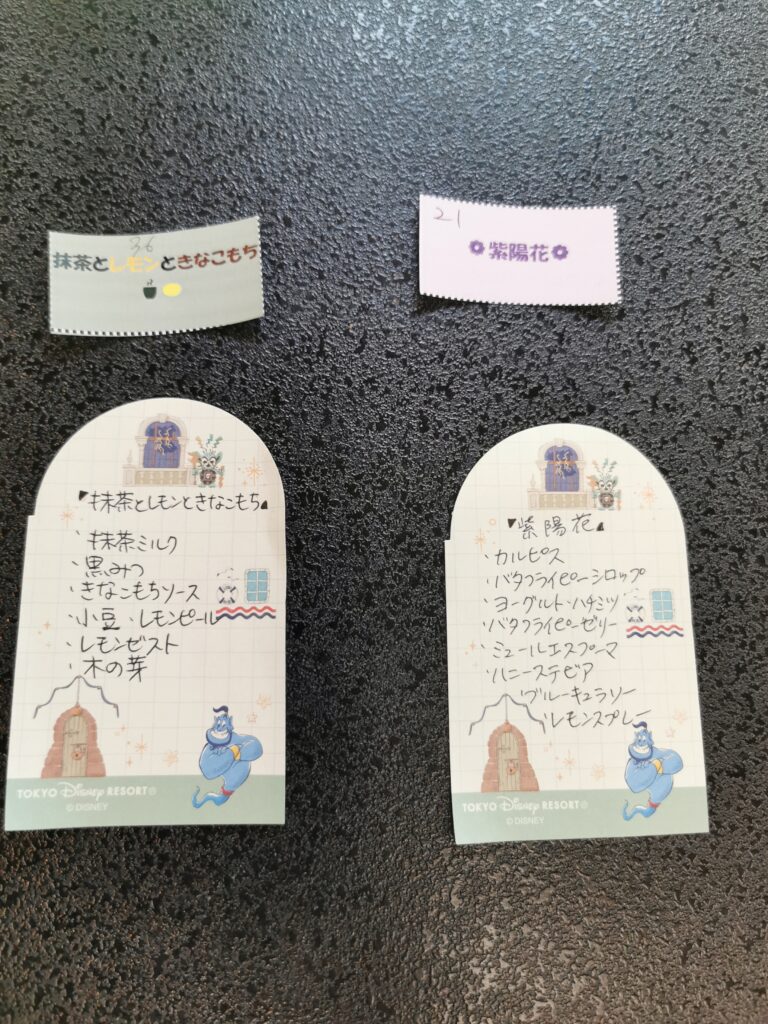 36
抹茶とレモンときなこもち
21
紫陽花
抹茶とレモンときなこもち
・抹茶ミルク
・黒みつ
・きなこもちソース
・小豆・レモンピール
・レモンゼスト
・木の芽
TOKYO Disney RESORT®
© DISNEY
紫陽花
・カルピス
・バタフライピーシロップ
・ヨーグルト・ハチミツ
・バタフライピーゼリー
・ミュールエスプーマ
・ハニーステビア
ブルーキュラソー
レモンスプレー
TOKYO Disney RESORT®
© DISNEY